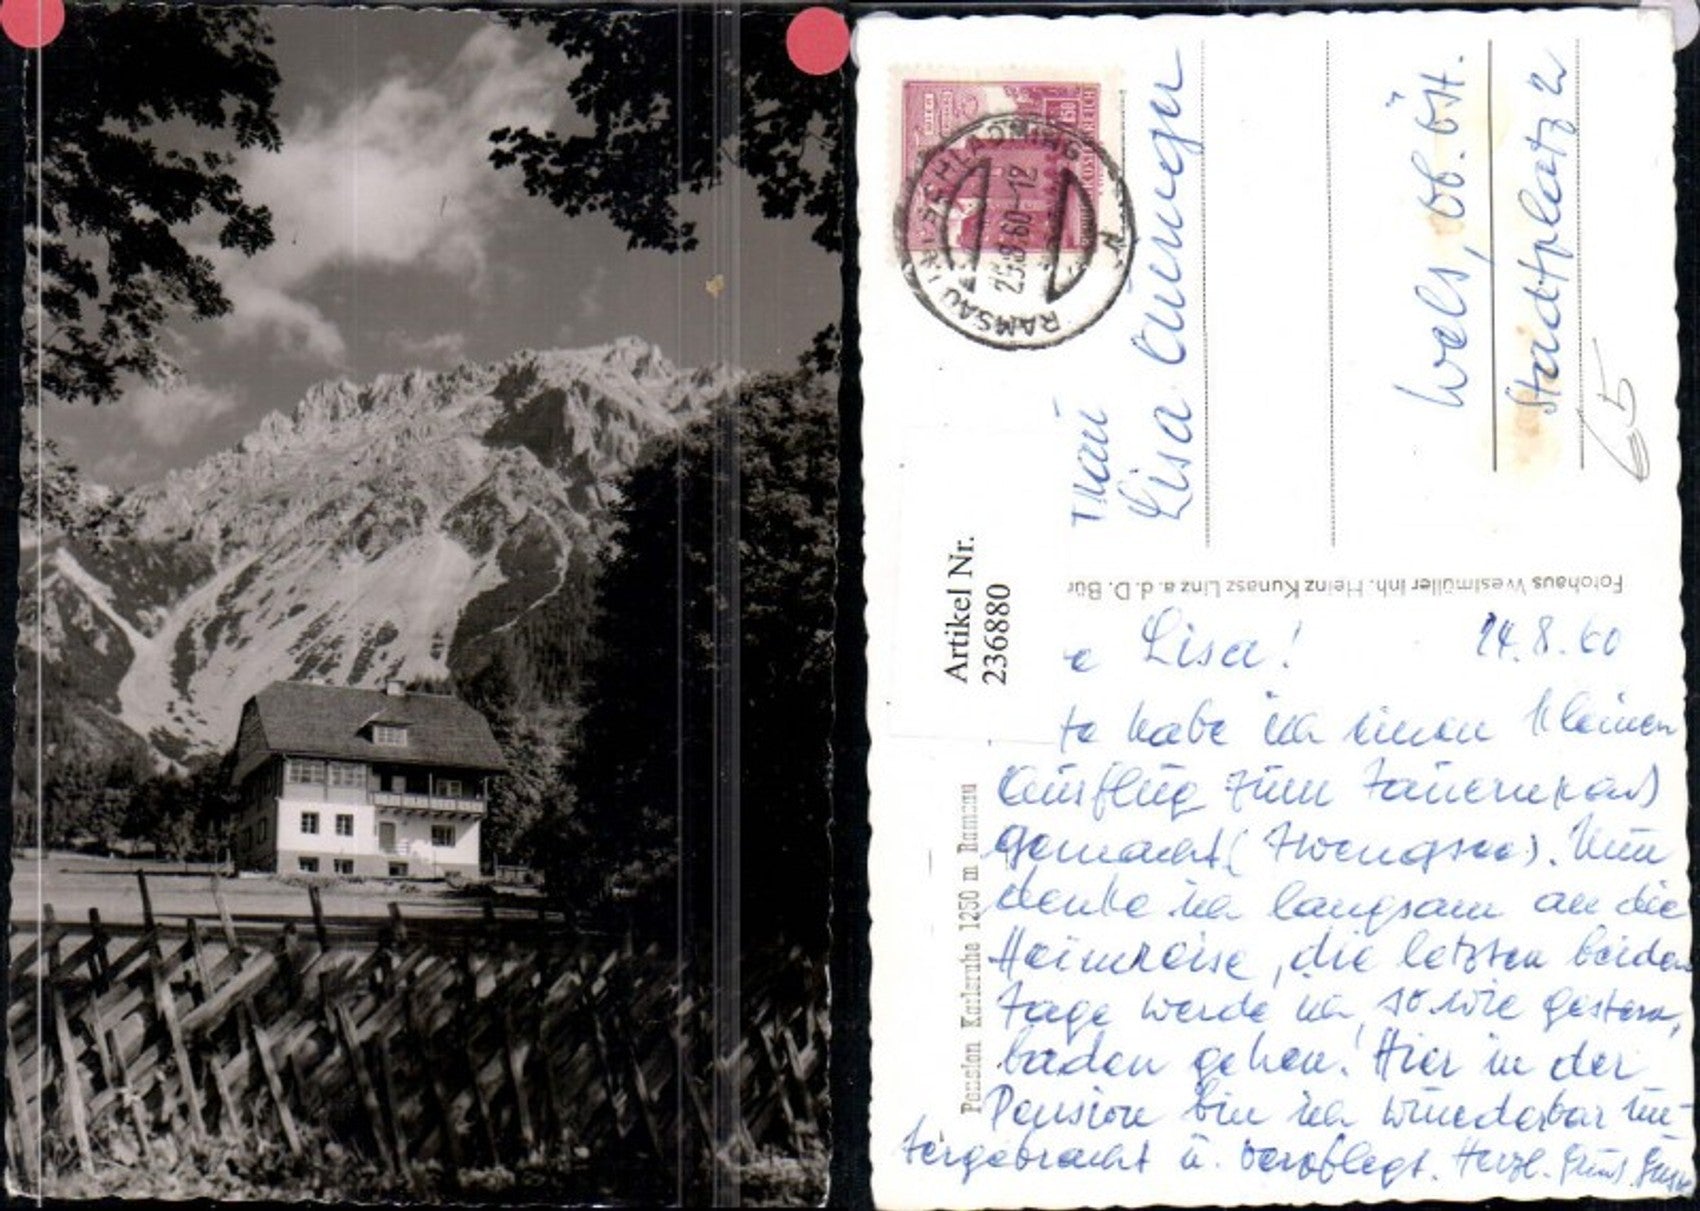 RAMSAU
SCHLADMING
25.8.60-12
Frau
Lisa
Wels, Ob. Öst.
Stadtplatz 2
65
Artikel Nr.
236880
Fotohaus Westmüller Inh. Heinz Kunasz Linz a. d. D. Bür
Pension Karlsruhe 1250 m Ramsau
e Lisa! 24.8.60
te habe ich einen kleinen
Ausflug zum
gemacht ( ). Nun
denke ich langsam an die
Heimreise, die letzten beiden
Tage werde ich, so wie gestern,
baden gehen. Hier in der
Pension bin ich wunderbar un-
tergebracht u. verpflegt. Herzl. Grüße